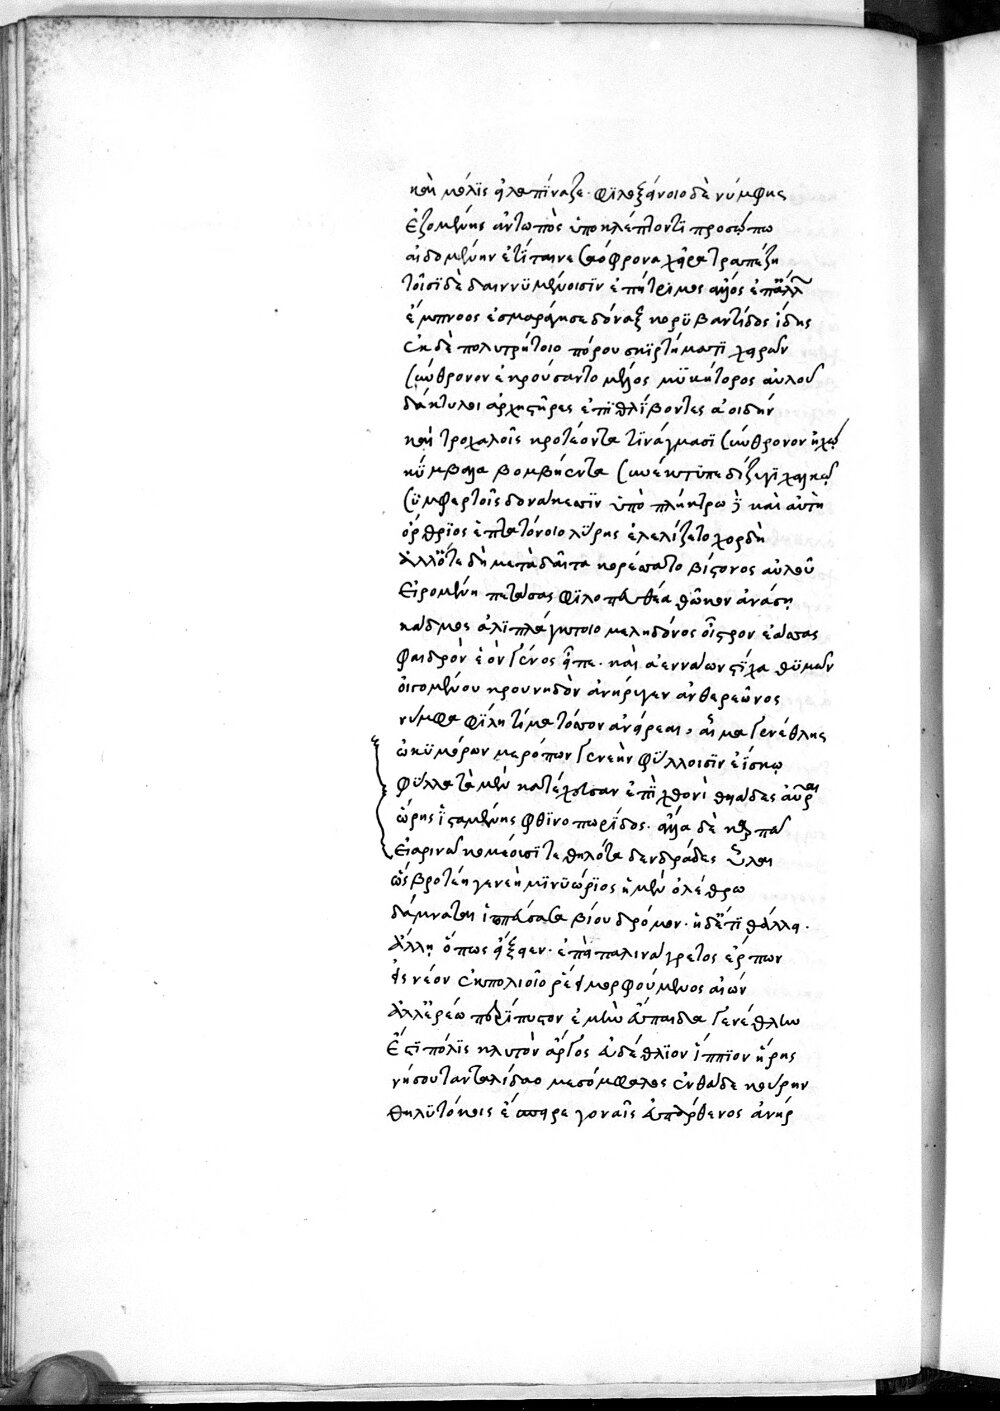 καὶ μόλϊς εἰλαπίναζε· φϊλοξείνοιο δὲ νύμφης
ἑζομένης ἀντωπὸς ὑποκλέπτοντϊ προσώπω
αἰδομένην ἐτίταινε σαόφρονα χεῖρα τραπέζη
τοῖσϊ δὲ δαιννϋμένοισϊν ἐπήτρϊμος ἄλλος ἐπάλλω
ἔμπνοος ἐσμαράγησε δόναξ κορϋβαντίδος ἴδης
ἐκ δὲ πολυτρήτοιο πόρου σκϊρτήματϊ χειρῶν
σύνθροον ἐκρούσαντο μέλος μϋκήτορος αὐλοῦ
δάκτυλοι ὀρχηστῆρες ἐπϊθλίβοντες ἀοιδήν
καὶ τροχαλοῖς κροτέοντα τϊνάγμασϊ σύνθροον ἠχὼ
κύμβαλα βομβήεντα συνέκτϋπε δίζυγϊ χαλκῶ
σϋμφερτοῖς δονάκεσσϊν ὑπὸ πλήκτρω δὲ καὶ αὐτὴ
ὄρθρϊος ἑπτατόνοιο λύρης ἐλελίζετο χορδὴ
ἀλλότε δὴ μετὰ δαῖτα κορέσσατο βίστονος αὐλοῦ
εἰρομένη πετάσας φϊλοπευθέα θῶκον ἀνάσση
κάδμος ἁλϊπλάγκτοιο μεληδόνος οἶστρον ἐάσας
φαιδρὸν ἑὸν γένος εἶπε· καὶ ἀεννάων στϊχα θϋμῶν
οἰγομένου κρουνηδὸν ἀνήρϋγεν ἀνθερεῶνος
νύμφα φΐλη τί με τόσσον ἀνείρεαι, αἷμα γενέθλης
ὠκϋμόρων μερόπων γενεὴν φύλλοισϊν ἐΐσκω
φύλλα τὰ μὲν κατέχευαν ἐπὶ χθονὶ θυιάδες αὖραι
ὥρης ἱσταμένης φθϊνοπωρίδος· ἄλλα δὲ καρπῶ
εἰαρινῶ κομέοισϊ τεθηλότα δενδράδες ὗλαι
ὣς βροτέη γενεὴ μϊνϋώρϊος ἡ μὲν ὀλέθρω
δάμναται ἱππεύσασα βίου δρόμον· ἡ δέτϊ θάλλει·
ἄλλη ὅπως εἴξειεν· ἐπεὶ παλινάγρετος ἕρπων
εἰς νέον ἐκ πολιοῖο ῥέει μορφούμενος αἰών
ἀλλ' ἐρέω πολϊπυστον ἐμὴν εὔπαιδα γενέθλην
ἔστϊ πόλϊς κλυτὸν ἄργος ἐδέθλϊον ἵππϊον ἥρης
νήσου τανταλίδαο μεσόμφαλος ἔνθα δε κούρην
θηλϋτόκοις ἔσπειρε γοναῖς εὐπάρθενος ἀνήρ